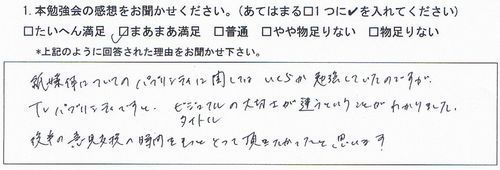 1. 本勉強会の感想をお聞かせください。（あてはまる□1つに✔を入れてください）
□たいへん満足 ☑まあまあ満足 □普通 □やや物足りない □物足りない
*上記のように回答された理由をお聞かせ下さい。
紙媒体についてのパブリシティに関しては いくらか勉強していたのですが、
TVパブリシティですと、ビジュアルの大切さが違うということがわかりました。
タイトル
後半の意見交換の時間をもっととって頂きたかったと思います